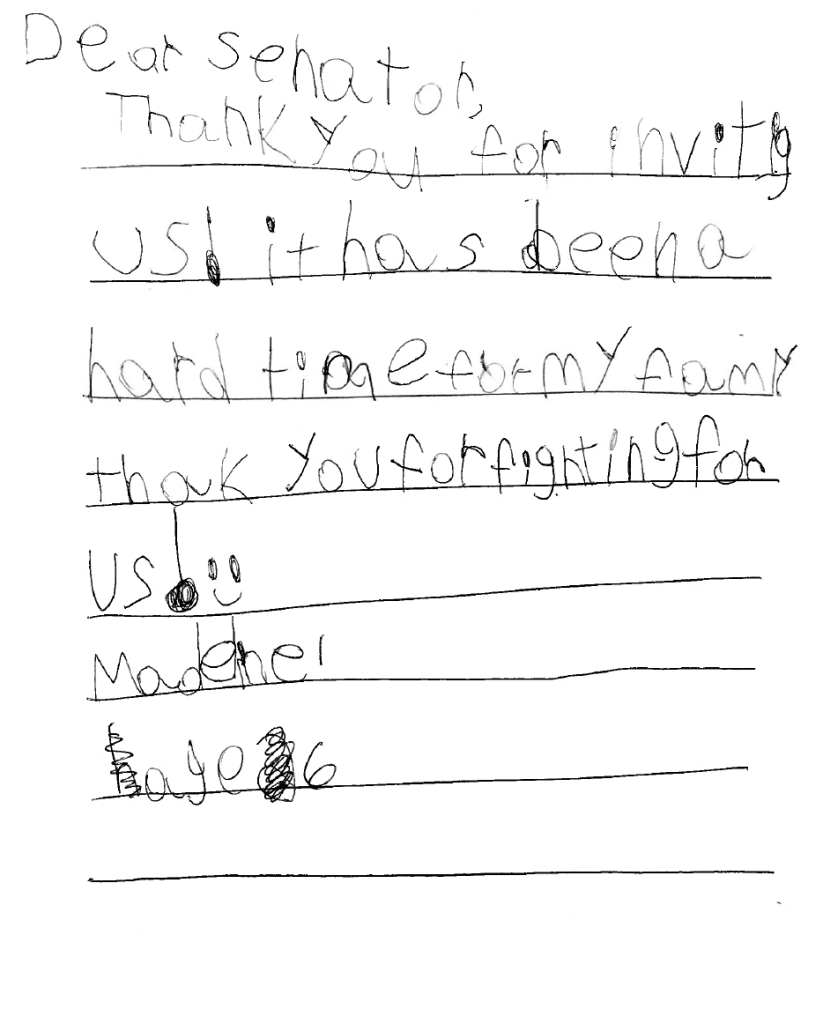 Dear Senator,
Thank You for invitg
US! it has been a
hard time for mY faimY
thak You for fighting for
US!
age 6